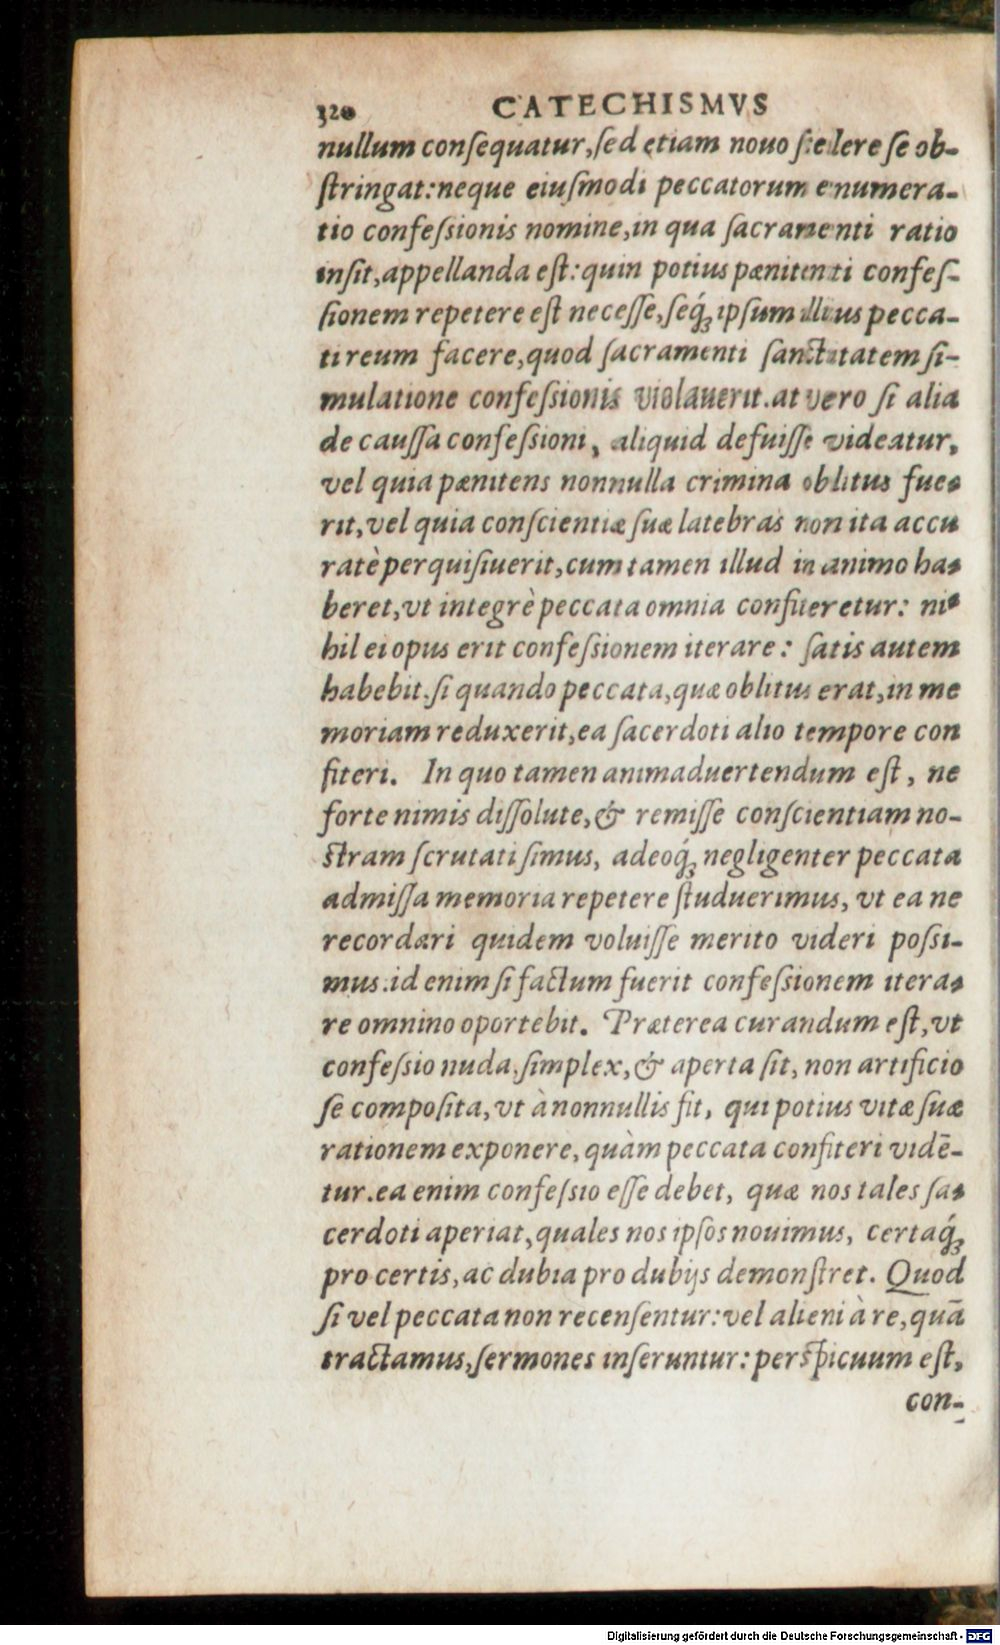 320 CATECHISMVS
nullum conſequatur, ſed etiam nouo ſcelere ſe ob-
ſtringat: neque eiuſmodi peccatorum enumera-
tio confeſsionis nomine, in qua ſacramenti ratio
inſit, appellanda eſt: quin potius pænitenti confeſ-
ſionem repetere eſt neceſſe, ſeq́ꝫ ipſum illius pecca-
ti reum facere, quod ſacramenti ſanctitatem ſi-
mulatione confeſsionis violauerit. at vero ſi alia
de cauſſa confeſsioni, aliquid defuiſſe videatur,
vel quia pænitens nonnulla crimina oblitus fue-
rit, vel quia conſcientiæ ſuæ latebras non ita accu
ratè perquiſiuerit, cum tamen illud in animo ha-
beret, vt integrè peccata omnia confiteretur: ni-
hil ei opus erit confeſsionem iterare: ſatis autem
habebit. ſi quando peccata, quæ oblitus erat, in me
moriam reduxerit, ea ſacerdoti alio tempore con
fiteri. In quo tamen animaduertendum eſt, ne
forte nimis diſſolute, & remiſſe conſcientiam no-
ſtram ſcrutati ſimus, adeoq́ꝫ negligenter peccata
admiſſa memoria repetere ſtuduerimus, vt ea ne
recordari quidem voluiſſe merito videri poſsi-
mus. id enim ſi factum fuerit confeſsionem itera-
re omnino oportebit. Præterea curandum eſt, vt
confeſsio nuda, ſimplex, & aperta ſit, non artificio
ſe compoſita, vt à nonnullis fit, qui potius vitæ ſuæ
rationem exponere, quàm peccata confiteri vidē-
tur. ea enim confeſsio eſſe debet, quæ nos tales ſa-
cerdoti aperiat, quales nos ipſos nouimus, certaq́ꝫ
pro certis, ac dubia pro dubijs demonſtret. Quod
ſi vel peccata non recenſentur: vel alieni à re, quā
tractamus, ſermones inſeruntur: perſpicuum eſt,
con-
Digitalisierung gefördert durch die Deutsche Forschungsgemeinschaft - DFG